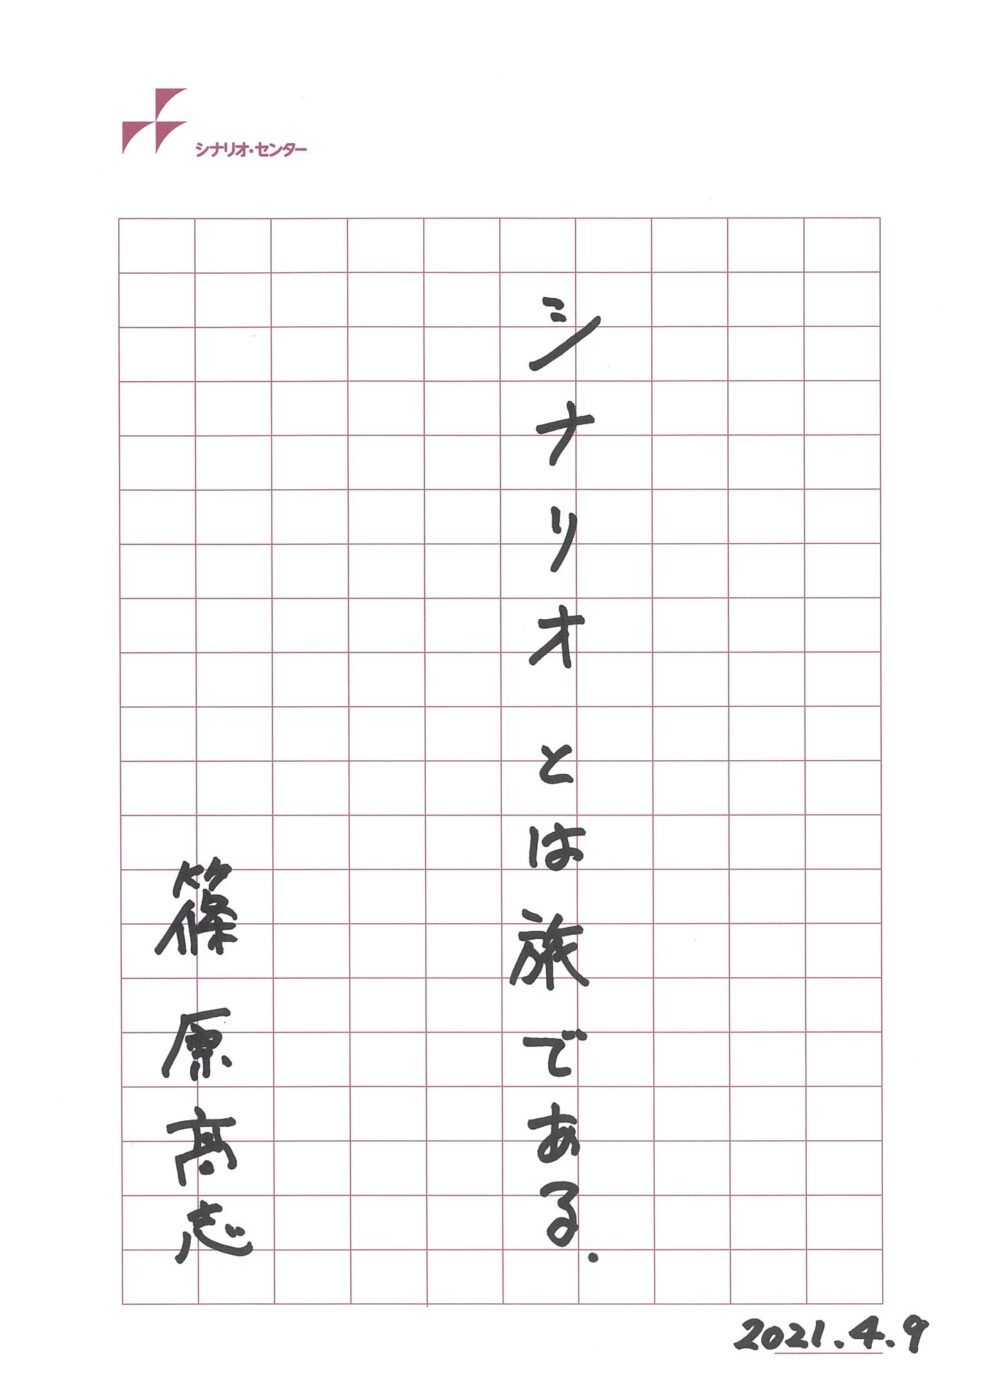 シナリオ・センター
シナリオとは旅である.
篠原高志
2021.4.9